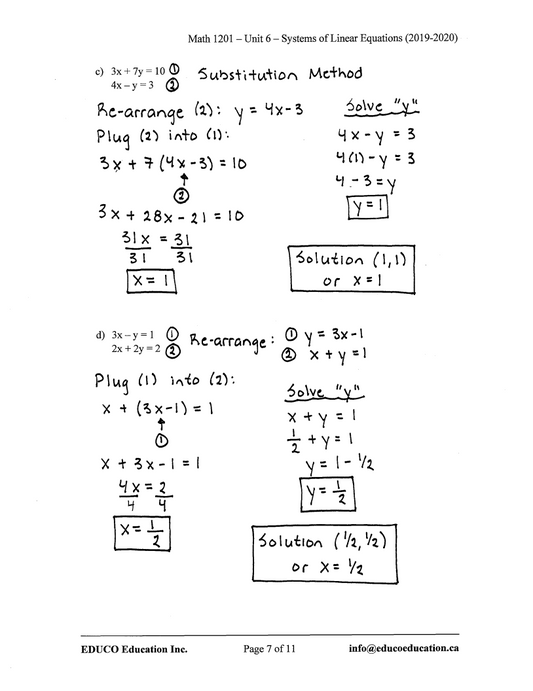 Math 1201 – Unit 6 – Systems of Linear Equations (2019-2020)
c) 3x + 7y = 10 ① Substitution Method
4x – y = 3 ②
Re-arrange (2): y = 4x-3
Plug (2) into (1):
3x + 7 (4x-3) = 10
②
3x + 28x - 21 = 10
31x = 31
31 31
x = 1
Solve "y"
4x - y = 3
4(1) - y = 3
4 - 3 = y
y = 1
Solution (1,1)
or x = 1
d) 3x – y = 1 ①
2x + 2y = 2 ②
Re-arrange: ① y = 3x-1
② x + y = 1
Plug (1) into (2):
x + (3x-1) = 1
①
x + 3x - 1 = 1
4x = 2
4 4
x = 1/2
Solve "y"
x + y = 1
1/2 + y = 1
y = 1 - 1/2
y = 1/2
Solution (1/2, 1/2)
or x = 1/2
EDUCO Education Inc. Page 7 of 11 info@educoeducation.ca